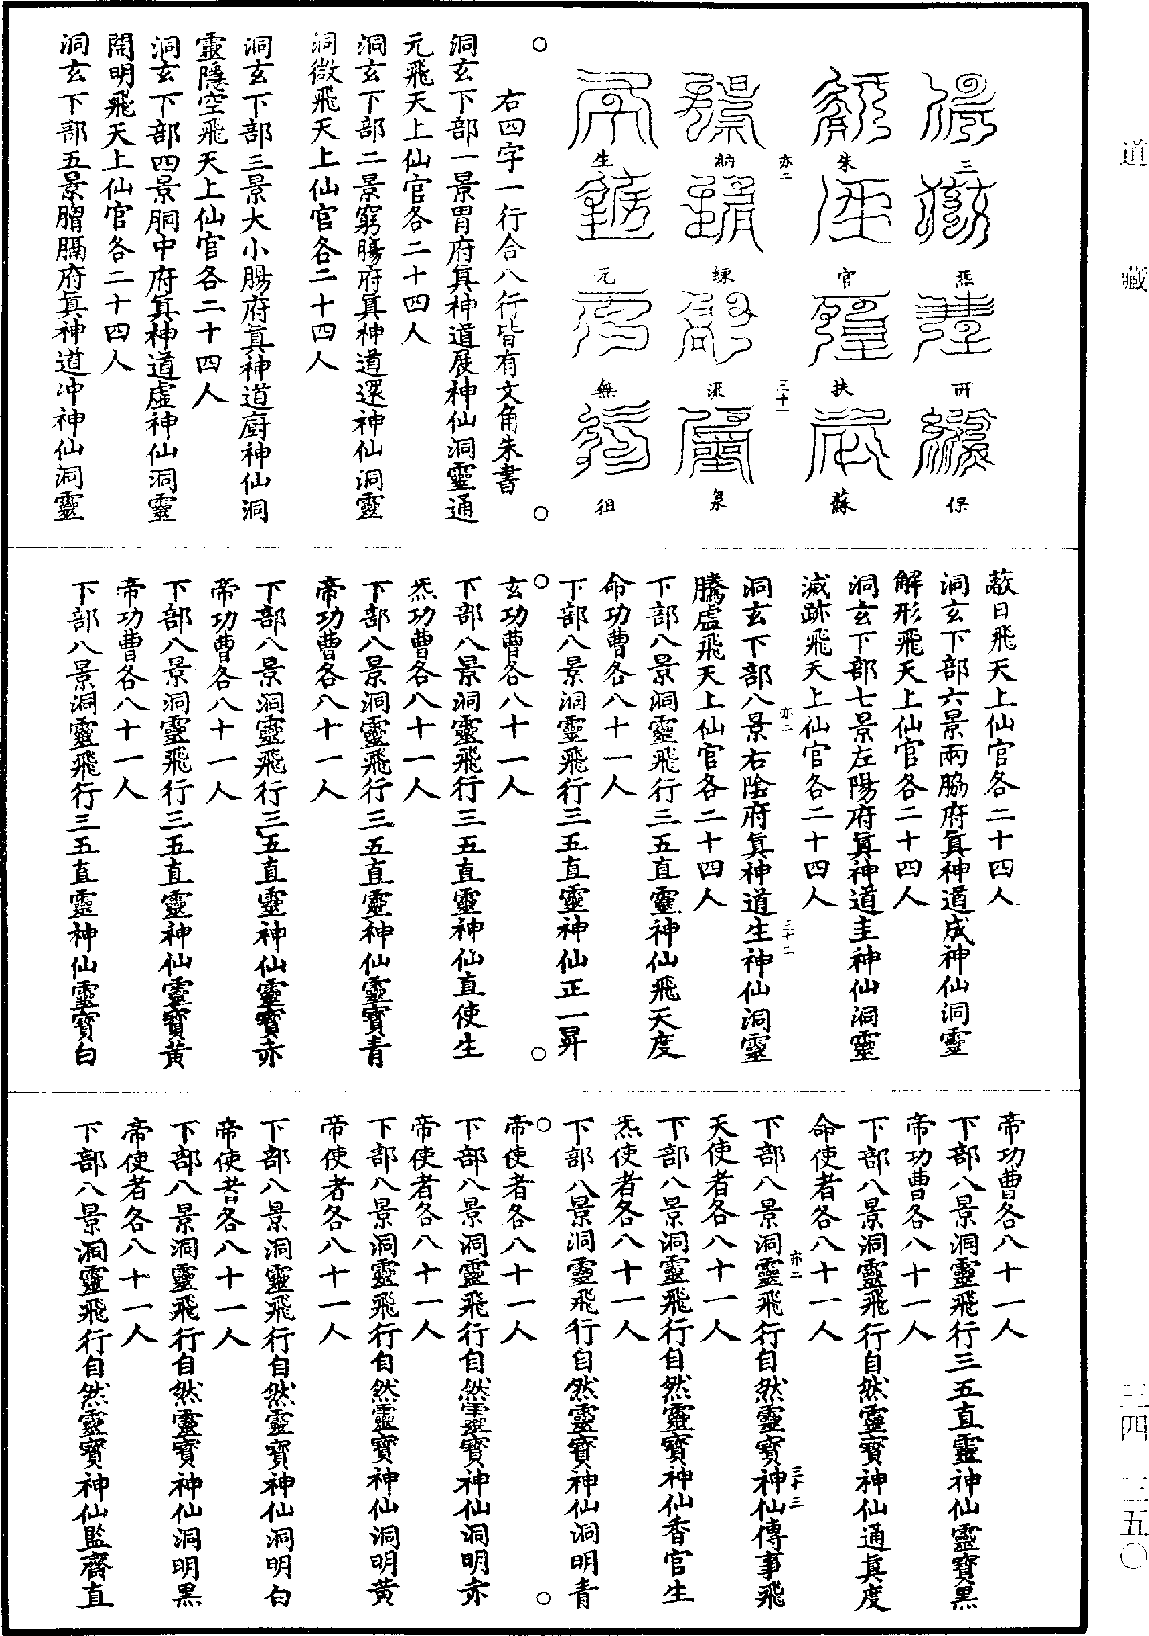 道藏
三四—二五〇
三 炁 所 保
朱 官 扶 蘇
亦二 三十一
練 泉
生 元 無 徊
右四字一行合八行皆有文角朱書
洞玄下部一景胃府真神道展神仙洞靈通
元飛天上仙官各二十四人
洞玄下部二景窮腸府真神道還神仙洞靈
洞微飛天上仙官各二十四人
洞玄下部三景大小腸府真神道廚神仙洞
靈隱空飛天上仙官各二十四人
洞玄下部四景胴中府真神道虛神仙洞靈
開明飛天上仙官各二十四人
洞玄下部五景膶膈府真神道沖神仙洞靈
蔽日飛天上仙官各二十四人
洞玄下部六景兩脇府真神道成神仙洞靈
解形飛天上仙官各二十四人
洞玄下部七景左陽府真神道圭神仙洞靈
滅跡飛天上仙官各二十四人
亦二 三十二
洞玄下部八景右陰府真神道生神仙洞靈
騰虛飛天上仙官各二十四人
下部八景洞靈飛行三五直靈神仙飛天度
命功曹各八十一人
下部八景洞靈飛行三五直靈神仙正一昇
玄功曹各八十一人
下部八景洞靈飛行三五直靈神仙直使生
炁功曹各八十一人
下部八景洞靈飛行三五直靈神仙靈寶青
帝功曹各八十一人
下部八景洞靈飛行三五直靈神仙靈寶赤
帝功曹各八十一人
下部八景洞靈飛行三五直靈神仙靈寶黃
帝功曹各八十一人
下部八景洞靈飛行三五直靈神仙靈寶白
帝功曹各八十一人
下部八景洞靈飛行三五直靈神仙靈寶黑
帝功曹各八十一人
下部八景洞靈飛行自然靈寶神仙通真度
命使者各八十一人
亦二 三十三
下部八景洞靈飛行自然靈寶神仙傳事飛
天使者各八十一人
下部八景洞靈飛行自然靈寶神仙香官生
炁使者各八十一人
下部八景洞靈飛行自然靈寶神仙洞明青
帝使者各八十一人
下部八景洞靈飛行自然靈寶神仙洞明赤
帝使者各八十一人
下部八景洞靈飛行自然靈寶神仙洞明黃
帝使者各八十一人
下部八景洞靈飛行自然靈寶神仙洞明白
帝使者各八十一人
下部八景洞靈飛行自然靈寶神仙洞明黑
帝使者各八十一人
下部八景洞靈飛行自然靈寶神仙監齋直